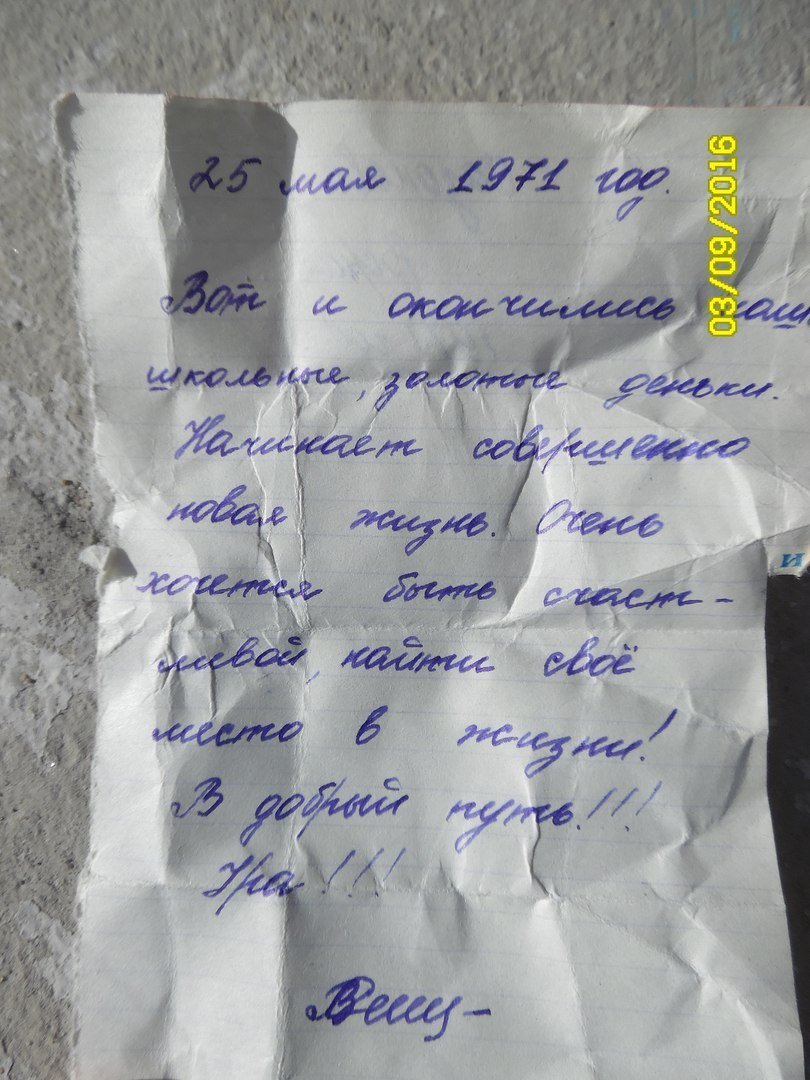 25 мая 1971 год.
Вот и окончились
школьные, золотые деньки.
Начинает совершенно
новая жизнь. Очень
хочется быть счаст-
ливой, найти своё
место в жизни!
В добрый путь.!!!
Ура!!!
03/09/2016
и